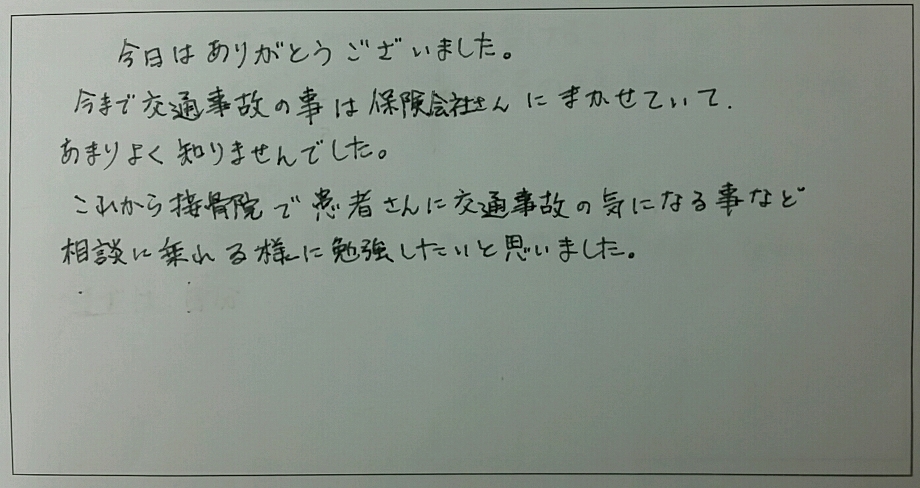 今日はありがとうございました。
今まで交通事故の事は保険会社さんにまかせていて.
あまりよく知りませんでした。
これから接骨院で患者さんに交通事故の気になる事など
相談に乗れる様に勉強したいと思いました。